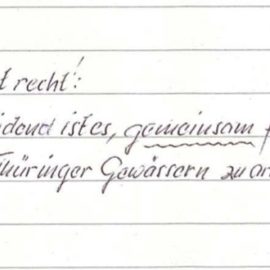 t recht!:
idend ist es, gemeinsam f
Thüringer Gewässern zu ar